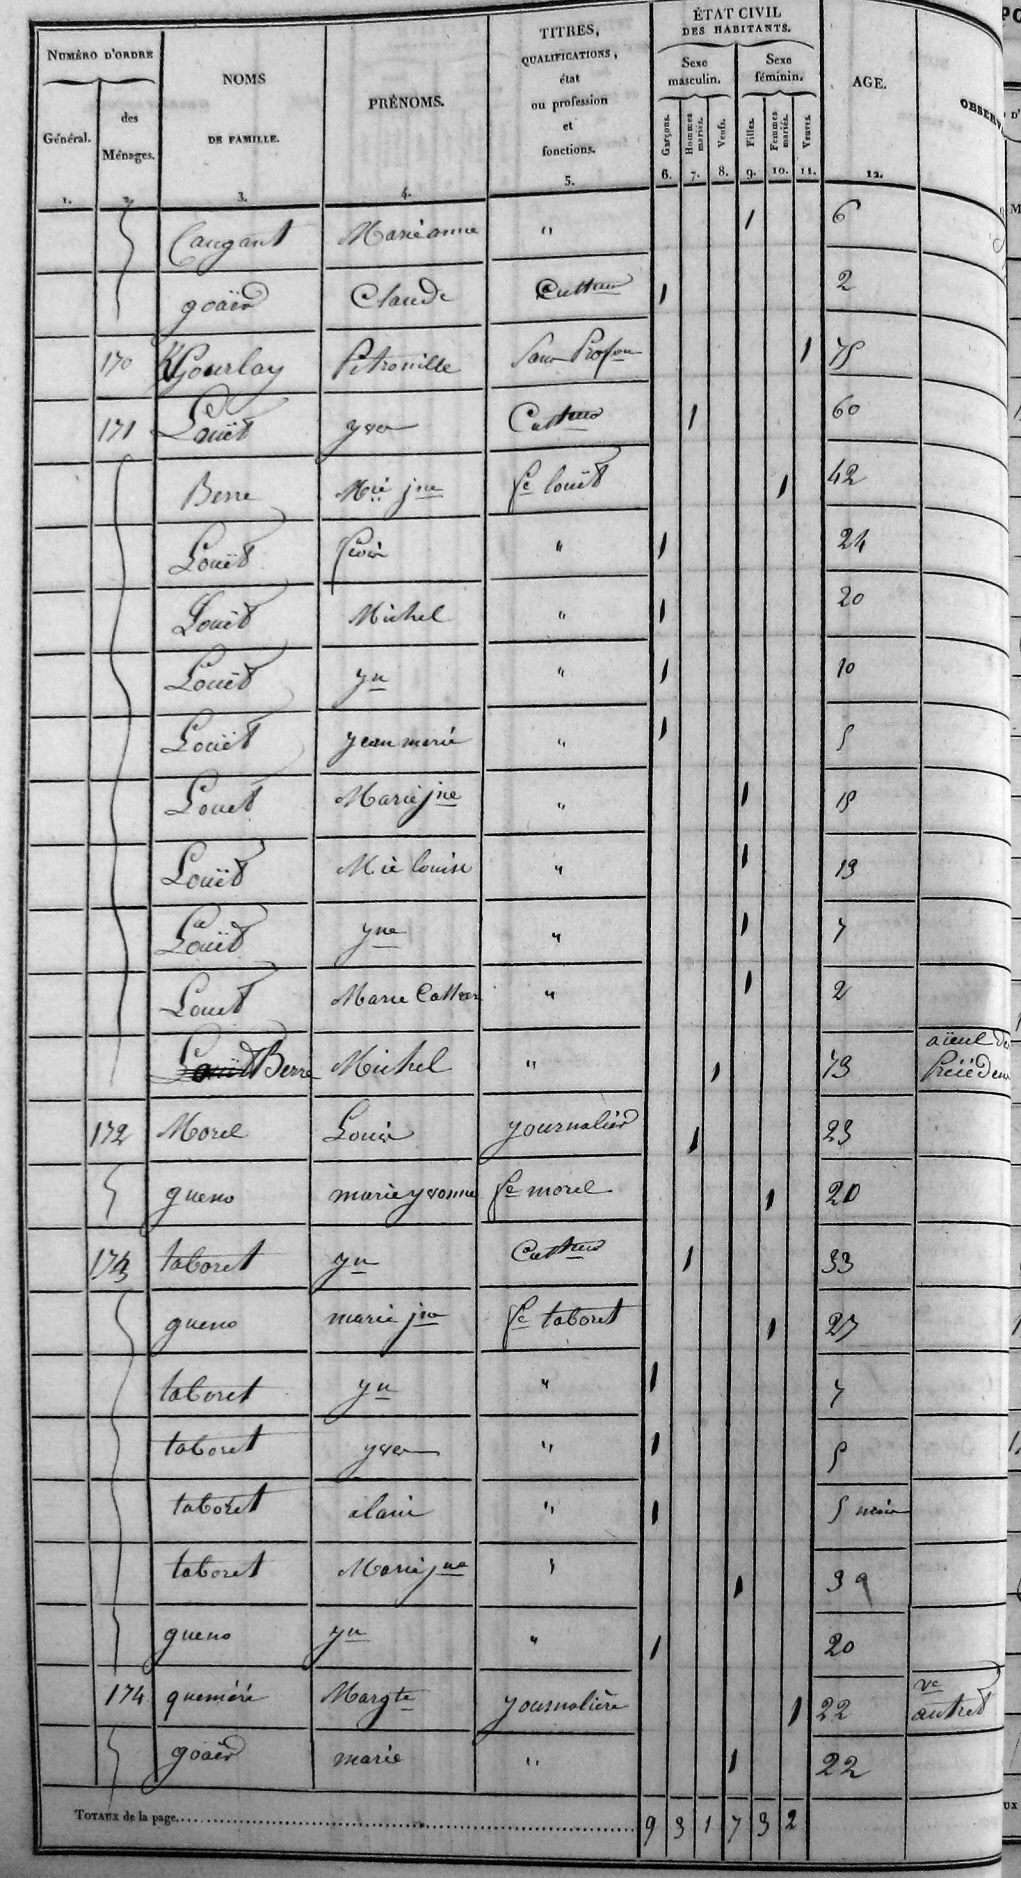 NUMÉRO D'ORDRE
Général.
des
Ménages.
NOMS
DE FAMILLE.
PRÉNOMS.
TITRES,
QUALIFICATIONS,
état
ou profession
et
fonctions.
ÉTAT CIVIL
DES HABITANTS.
Sexe
masculin.
Sexe
féminin.
Garçons.
Hommes
mariés.
Veufs.
Filles.
Femmes
mariés.
Veuves.
AGE.
1. 2. 3. 4. 5. 6. 7. 8. 9. 10. 11. 12.
Caugant Marie anne " 1 6
goäer Claude Cultteur 1 2
170 Gourlay Pétronille Sans Profon 1 75
171 Louët yves Cultteur 1 60
Berre Mie jne fe louët 1 42
Louët " 1 24
Louët Michel " 1 20
Louët yn " 1 10
Louët jean marie " 1 5
Louet Marie jne " 1 15
Louët Mie louise " 1 13
Louët yne " 1 7
Louet Marie " 1 2
Louët Berre Michel " 1 73 aïeul des
Précédens
172 Morel Louis journalier 1 23
gueno marie yvonne fe morel 1 20
173 taboret yn Cultteur 1 33
gueno marie jne fe taboret 1 27
taboret yn " 1 7
taboret yves " 1 5
taboret alain " 1 5 mois
taboret Marie jne " 1 3
gueno yn " 1 20
174 queméré Margte journalière 1 22 ve
autret
goäer marie " 1 22
TOTAUX de la page 9 3 1 7 3 2